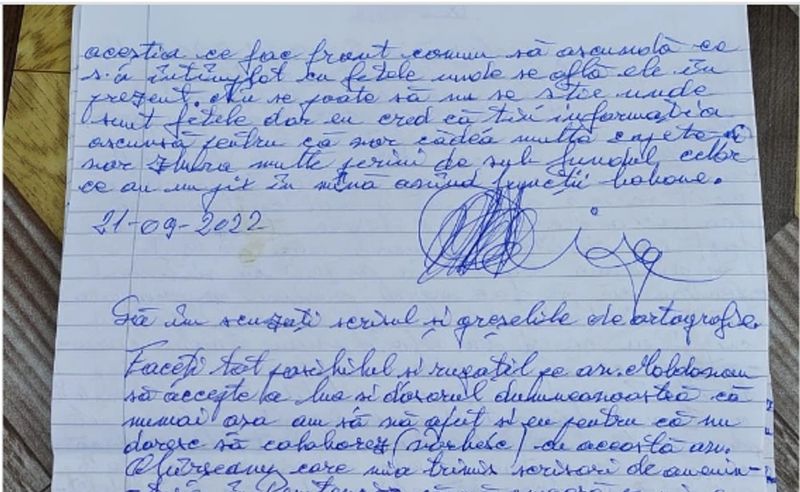 aceștia ce fac front comun să ascundă ce
s.a întîmplat cu fetele unde se află ele în
prezent. Nu se poate să nu se știe unde
sunt fetele dar eu cred că tin informația
ascunsă pentru că nor cădea multe capete și
nor zbura multe perini de sub fundul celor
ce au un pix în mînă avînd funcții babane.
21-09-2022
Să îm scuzați scrisul și greșelile de ortografie.
Faceți tot posibilul si rugațil pe av.
să accepte a lua si dosarul dumneavoastră că
numai asa am să vă ajut si eu pentru că nu
doresc să colaborez (vorbesc) cu această av.
care mia trimis scrisori de amenin-